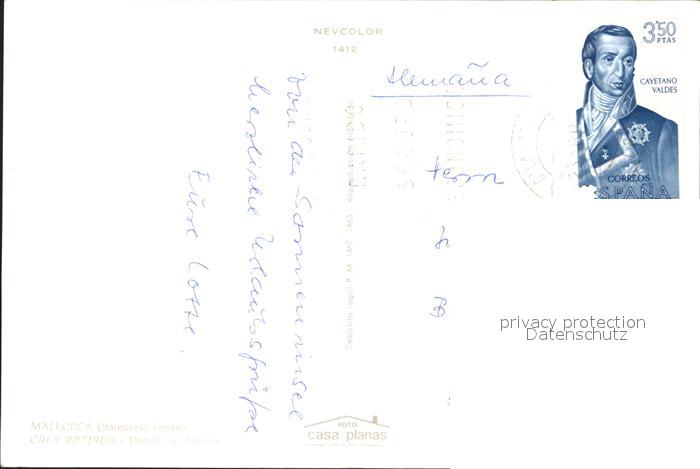 NEVCOLOR
1412
3'50
PTAS
CAYETANO
VALDES
CORREOS
ESPAÑA
Alemaña
Von der Sonneninsel
herzliche Urlaubsgrüße
Eure Lotte.
Herrn
B
Deposito Legal P. M. 1467 - 1963
MALLORCA (Baleares) España
CALA RATJADA.- Detalle del Puerto
FOTO
casa planas
privacy protection
Datenschutz